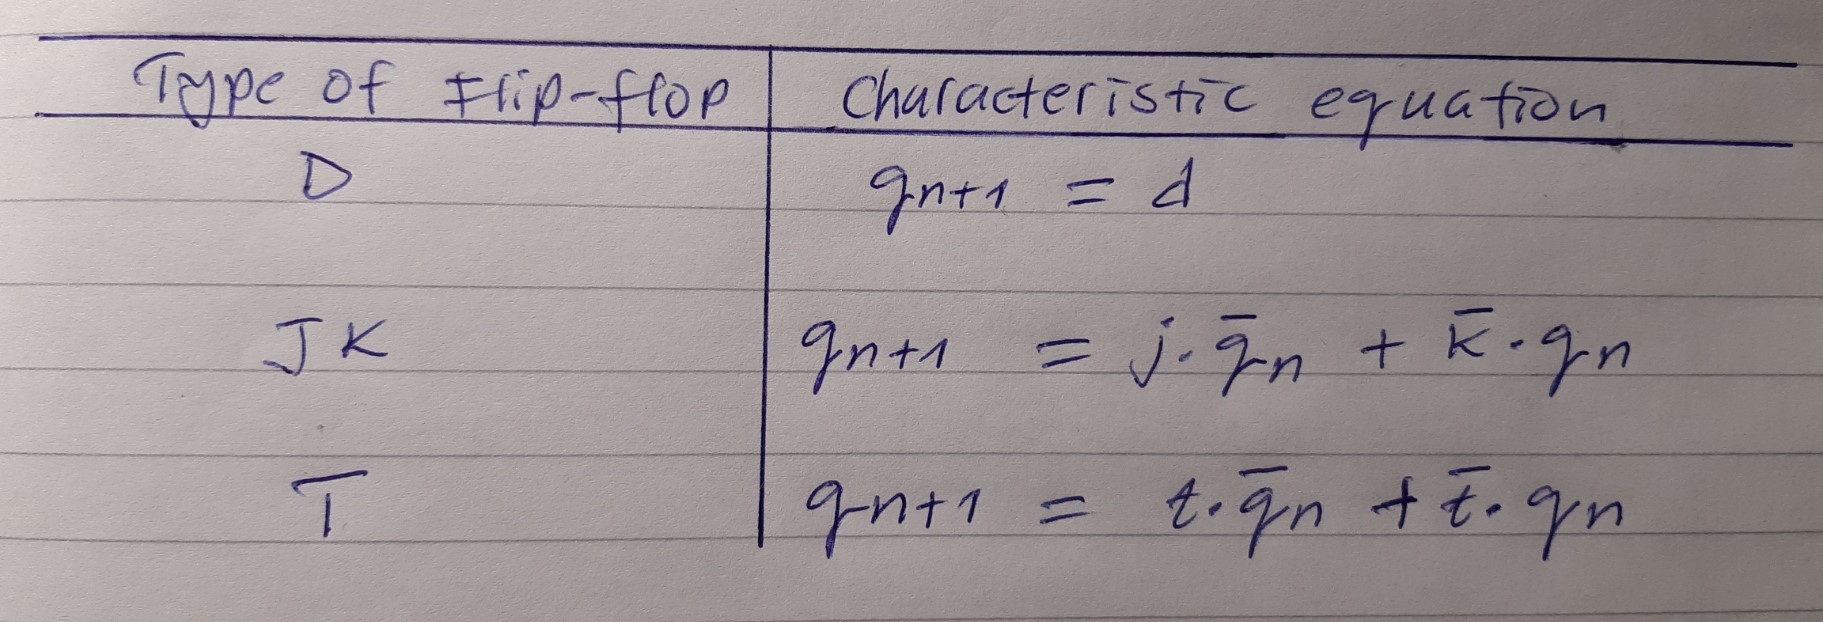 Type of Flip-flop Characteristic equation
D qn+1 = d
JK qn+1 = j·q̄n + k̄·qn
T qn+1 = t·q̄n + t̄·qn